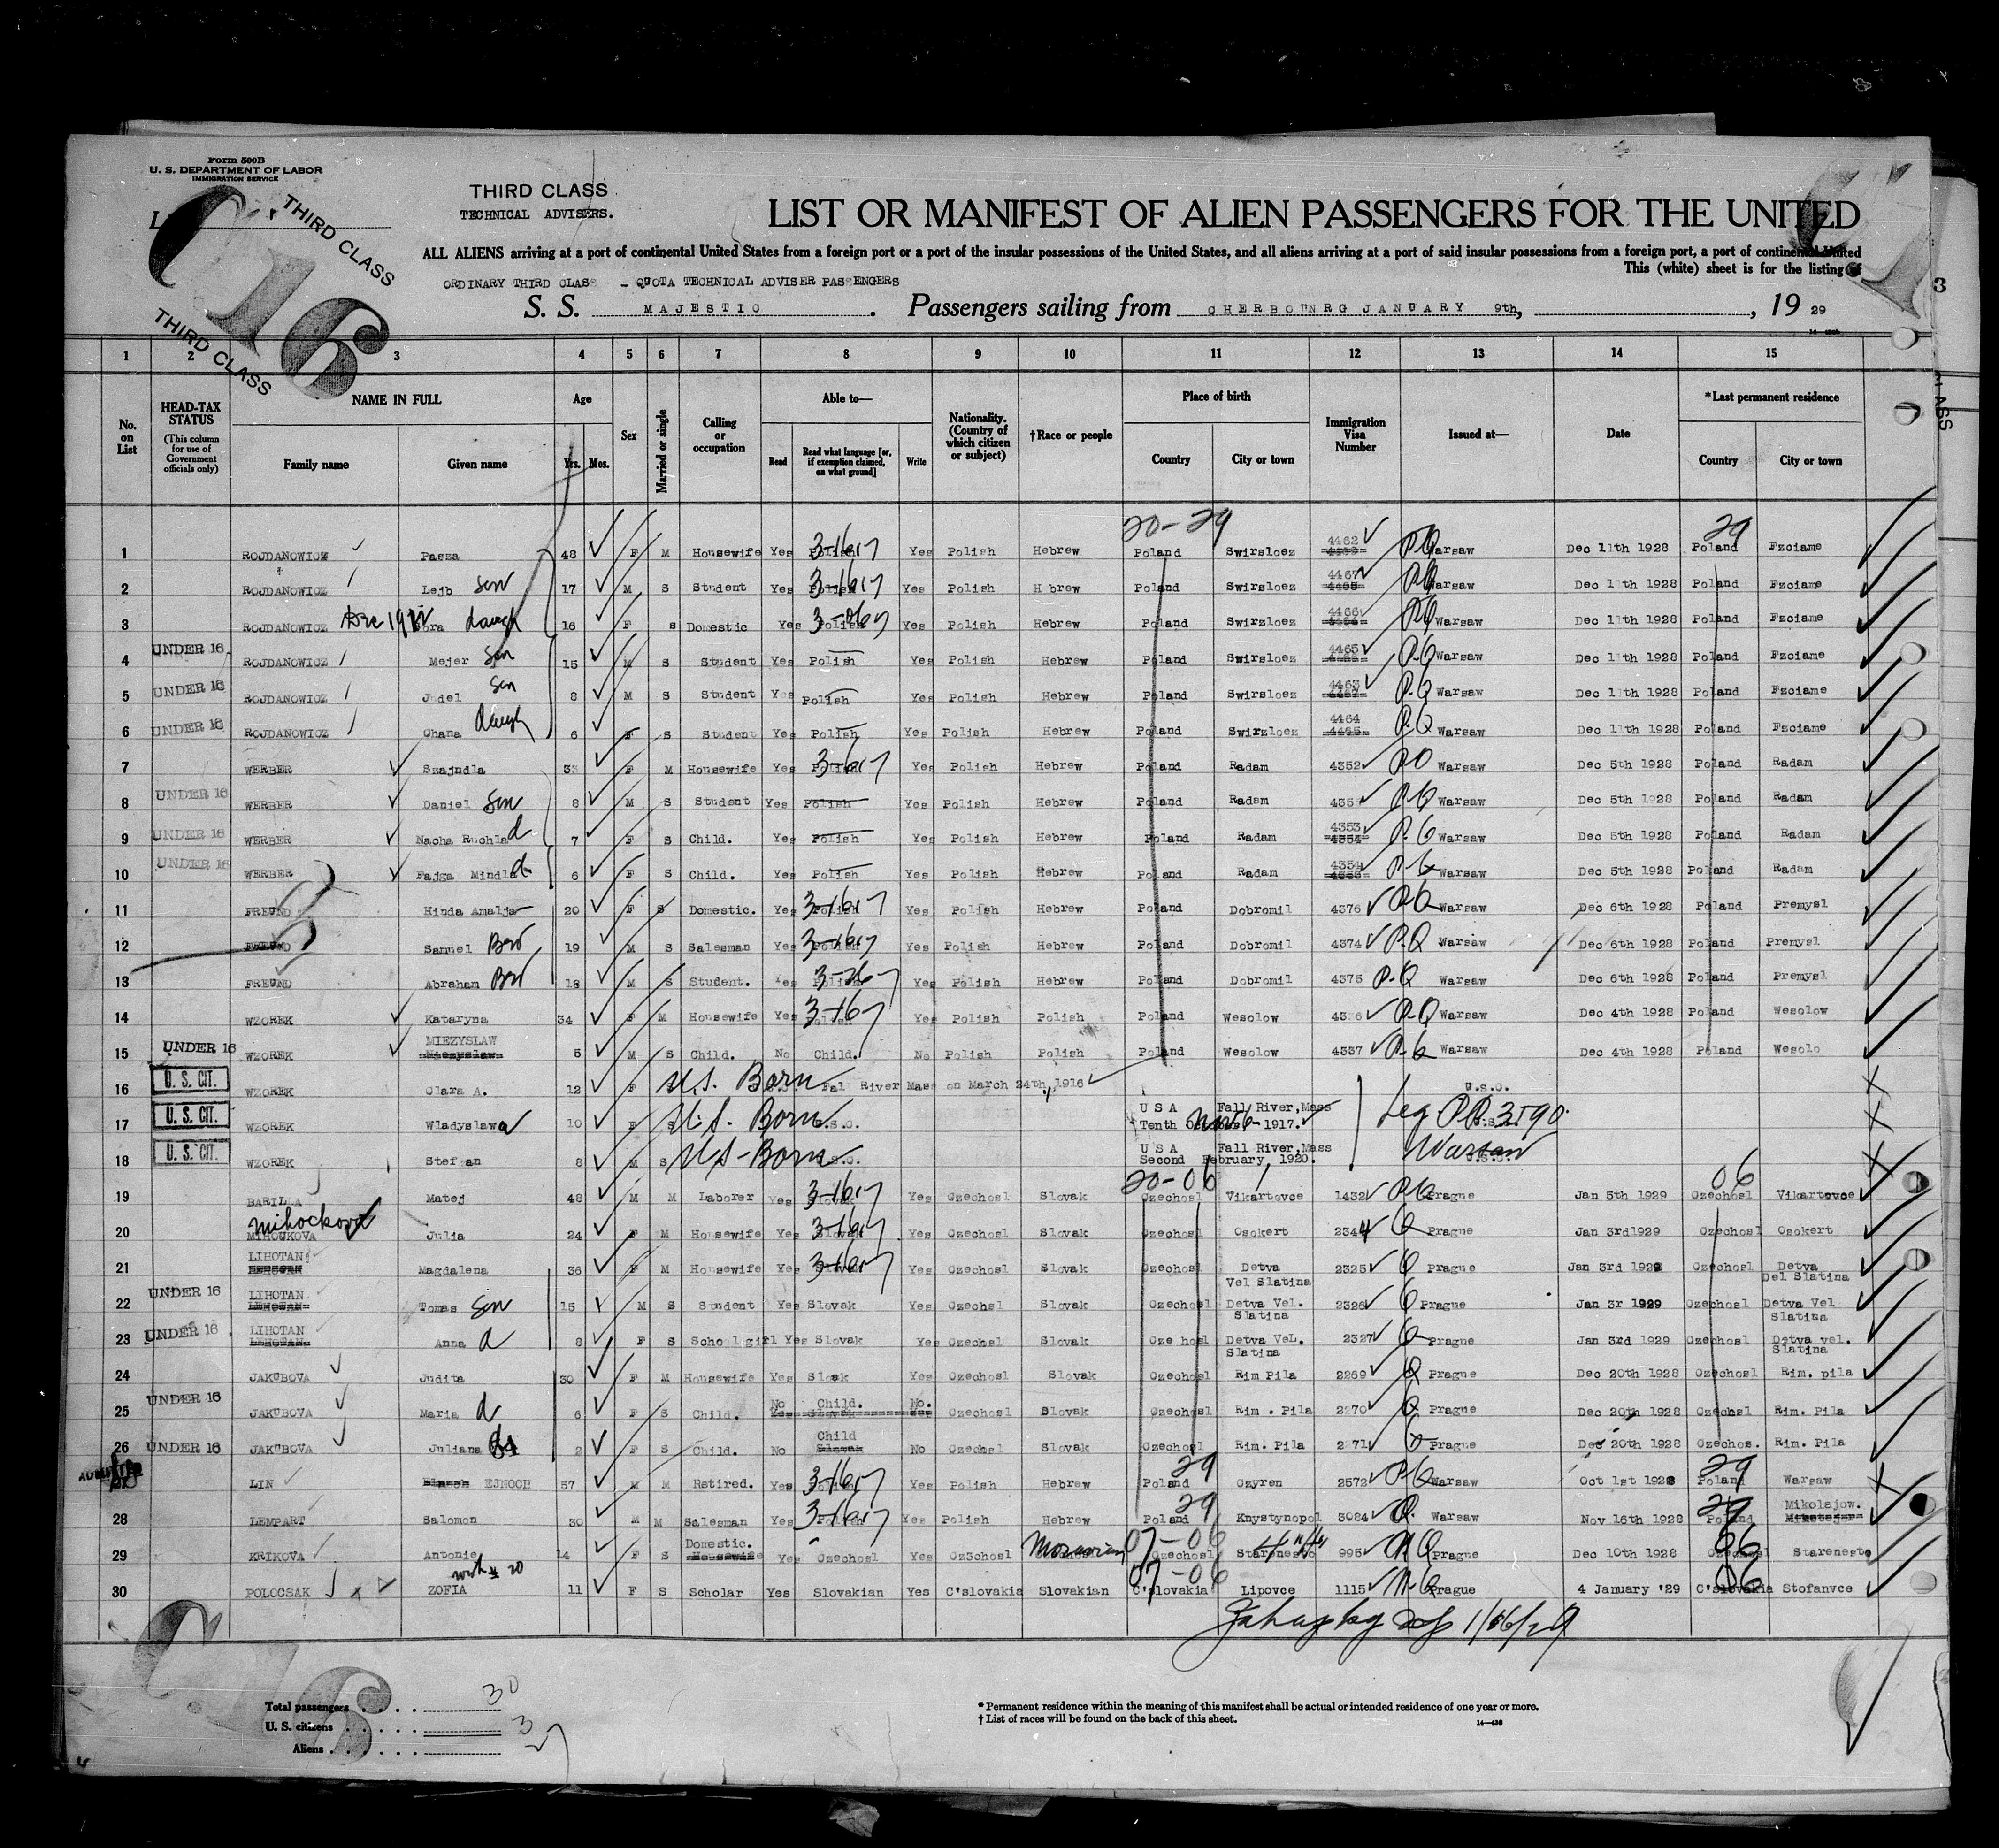 Form 500B
U. S. DEPARTMENT OF LABOR
IMMIGRATION SERVICE
THIRD CLASS
TECHNICAL ADVISERS.
THIRD CLASS
THIRD CLASS
16
LIST OR MANIFEST OF ALIEN PASSENGERS FOR THE UNITED
ALL ALIENS arriving at a port of continental United States from a foreign port or a port of the insular possessions of the United States, and all aliens arriving at a port of said insular possessions from a foreign port, a port of continental United
This (white) sheet is for the listing of
3
ORDINARY THIRD CLASS - QUOTA TECHNICAL ADVISER PASSENGERS
S. S. MAJESTIC. Passengers sailing from CHERBOUNRG JANUARY 9th, , 19 29
1 2 3 4 5 6 7 8 9 10 11 12 13 14 15
No. on List
HEAD-TAX STATUS (This column for use of Government officials only)
NAME IN FULL Family name Given name
Age Yrs. Mos.
Sex
Married or single
Calling or occupation
Able to— Read Read what language [or, if exemption claimed, on what ground] Write
Nationality. (Country of which citizen or subject)
†Race or people
Place of birth Country City or town
Immigration Visa Number
Issued at—
Date
*Last permanent residence Country City or town
20-29 29
1 ROJDANOWICZ Pasza 48 F M Housewife Yes Polish 3-16-17 Yes Polish Hebrew Poland Swirsloez 4462 PQ Warsaw Dec 11th 1928 Poland Fzciame
2 ROJDANOWICZ Lejb son 17 M S Student Yes Polish Yes Polish H brew Poland Swirsloez 4467 PQ Warsaw Dec 11th 1928 Poland Fzciame
3 ROJDANOWICZ daugh 16 F S Domestic Yes Polish Yes Polish Hebrew Poland Swirzloez 4466 PQ Warsaw Dec 11th 1928 Poland Fzciame
4 UNDER 16 ROJDANOWICZ Mejer son 15 M S Student Yes Polish Yes Polish Hebrew Poland Swirsloez 4465 P.Q Warsaw Dec 11th 1928 Poland Fzciame
5 UNDER 16 ROJDANOWICZ Judel son 8 M S Student Yes Polish Yes Polish Hebrew Poland Swirsloez 4463 P.Q Warsaw Dec 11th 1928 Poland Fzciame
6 UNDER 16 ROJDANOWICZ Chana daugh 6 F S Student Yes Polish Yes Polish Hebrew Poland Swirzloez 4464 P.Q Warsaw Dec 11th 1928 Poland Fzciame
7 WERBER Szajndla F M Housewife Yes Polish Yes Polish Hebrew Poland Radam 4352 PQ Warsaw Dec 5th 1928 Poland Radam
8 UNDER 16 WERBER Daniel son 8 M S Student Yes Polish Yes Polish Hebrew Poland Radam P.Q Warsaw Dec 5th 1928 Poland Radam
9 UNDER 16 WERBER Nacha Ruchla d 7 F S Child. Yes Polish Yes Polish Hebrew Poland Radam 4353 P.Q Warsaw Dec 5th 1928 Poland Radam
10 UNDER 16 WERBER Fajga Mindla d 6 F S Child. Yes Polish Yes Polish Hebrew Poland Radam 4354 P.Q Warsaw Dec 5th 1928 Poland Radam
11 FREUND Hinda Amalja 20 F S Domestic. Yes Polish Yes Polish Hebrew Poland Dobromil 4376 PQ Warsaw Dec 6th 1928 Poland Premysl
12 FREUND Samuel Bro 19 M S Salesman Yes Polish Yes Polish Hebrew Poland Dobromil 4374 P.Q Warsaw Dec 6th 1928 Poland Premysl
13 FREUND Abraham Bro 18 M S Student. Yes Polish Yes Polish Hebrew Poland Dobromil 4375 P.Q Warsaw Dec 6th 1928 Poland Premysl
14 WZOREK Kataryna 34 F M Housewife Yes Polish Yes Polish Polish Poland Wesolow PQ Warsaw Dec 4th 1928 Poland Wesolow
15 UNDER 16 WZOREK MIEZYSLAW 5 M S Child. No Child. No Polish Polish Poland Wesolow 4337 P.Q Warsaw Dec 4th 1928 Poland Wesolo
16 U. S. CIT. WZOREK Clara A. 12 F U.S. Born Fal River Mass on March 24th, 1916 U.S.C.
17 U. S. CIT. WZOREK Wladyslawa 10 F S U.S. Born U.S.C. U S A Fall River, Mass Tenth 1917. 
18 U. S. CIT. WZOREK Stefpan 8 M S US-Born U.S.C. U S A Fall River, Mass Second February, 1920. Warsaw
20-06 06
19 BARILLA Matej 48 M M Laborer Yes Slovak Yes Czechosl Slovak Czechosl Vikartovce 1432 PQ Prague Jan 5th 1929 Czechosl Vikartovce
20 Mihockova MIHOUKOVA Julia 24 F M Housewife Yes Slovak Yes Czechosl Slovak Czechosl Csokert 2344 Q Prague Jan 3rd1929 Czechosl Csokert
21 LIHOTAN Magdalena 36 F M Housewife Yes Yes Czechosl Slovak Czechosl Detva Vel Slatina 2325 Q Prague Jan 3rd 1929 Czechosl Detva Del Slatina
22 UNDER 16 LIHOTAN Tomas son 15 M S Student Yes Slovak Yes Czechsl Slovak Czechosl Detva Vel. Slatina 2326 Q Prague Jan 3r 1929 Czechosl Detva Vel Slatina
23 UNDER 16 LIHOTAN Anna d 8 F S School girl Yes Slovak Yes Czechsl Slovak Cze hosl Detva VeL. Slatina 2327 Q Prague Jan 3rd 1929 Czechosl Detva vel. Slatina
24 JAKUBOVA Judita 30 F M Housewife Yes Sloak Yes Czechosl Slovak Czechosl Rim Pila 2269 Q Prague Dec 20th 1928 Czechosl Rim. pila
25 UNDER 16 JAKUBOVA Maria d 6 F S Child. No Child. No. Czechosl Slovak Czechosl Rim . Pila 2270 Q Prague Dec 20th 1928 Czechosl Rim. Pila
26 UNDER 16 JAKUBOVA Juliana 2 F S Child. No Child No Czechsl Slovak Czechosl Rim. Pila 2271 Q Prague Dec 20th 1928 Czechos. Rim. Pila
ADMITTED LIN EJNOCH 57 M M Retired. Yes Polish Yes Polish Hebrew 29 Poland Ozyren 2572 PQ Warsaw Oct 1st 1928 29 Poland Warsaw
28 LEMPART Salomon 30 M M Salesman Yes Polish Yes Polish Hebrew 29 Poland Knystynopol 3084 Q. Warsaw Nov 16th 1928 29 Poland Mikolajow.
29 KRIKOVA Antonie 14 F S Domestic. Housewife Yes Czechosl Yes Czechosl Moravian 07-06 Czechosl Starenesto 995 N Q Prague Dec 10th 1928 06 Czechosl Stareneste
30 POLOCSAK ZOFIA 11 F S Scholar Yes Slovakian Yes C'slovakia Slovakian 07-06 C'slovakia Lipovce 1115 N.Q Prague 4 January '29 06 C'slovakia Stofanvce
1/16/29
Total passengers 30
U. S. citizens 3
Aliens 27
* Permanent residence within the meaning of this manifest shall be actual or intended residence of one year or more.
† List of races will be found on the back of this sheet.
14—436